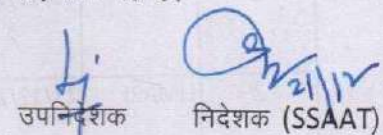 21/12
उपनिदेशक निदेशक (SSAAT)